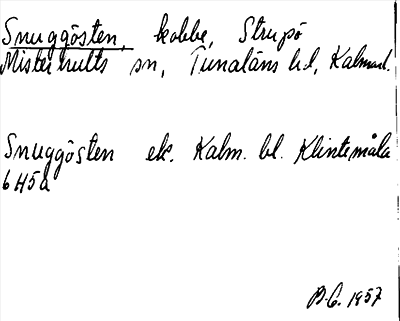 Snuggösten, kobbe, Strupö
Misterhults sn, Tunaläns hd, Kalmar l.
Snuggösten ek. Kalm. bl. Klintemåla
6H5a
B.G. 1957